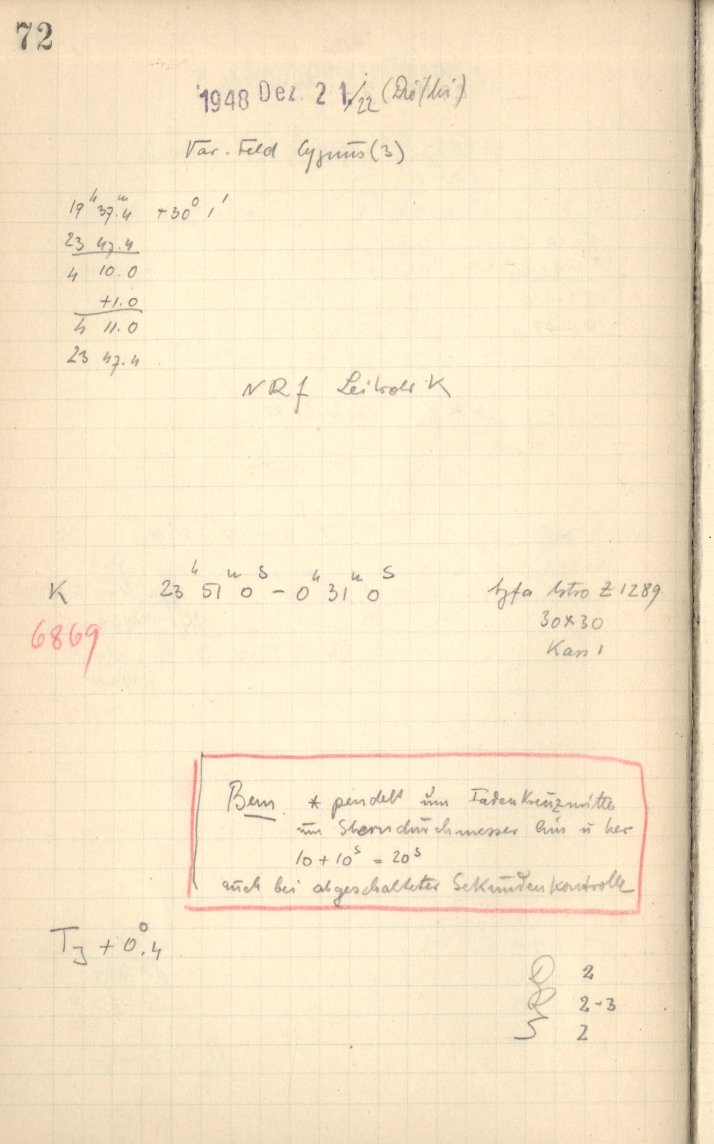 72
1948 Dez. 21/22 (Di/Mi)
Var. Feld Cygnus (3)
19ʰ 37ᵐ.4 +30° 1'
23 47.4
4 10.0
+1.0
4 11.0
23 47.4
NRf K
K 23ʰ 51ᵐ 0ˢ - 0ʰ 31ᵐ 0ˢ Agfa Astro Z 1289
6869 30x30
Kass 1
Bem * pendelt um Fadenkreuzmitte
um Sterndurchmesser hin u her
10 + 10ˢ = 20ˢ
auch bei abgeschalteter Sekundenkontrolle
TJ + 0°.4
2
R 2-3
2